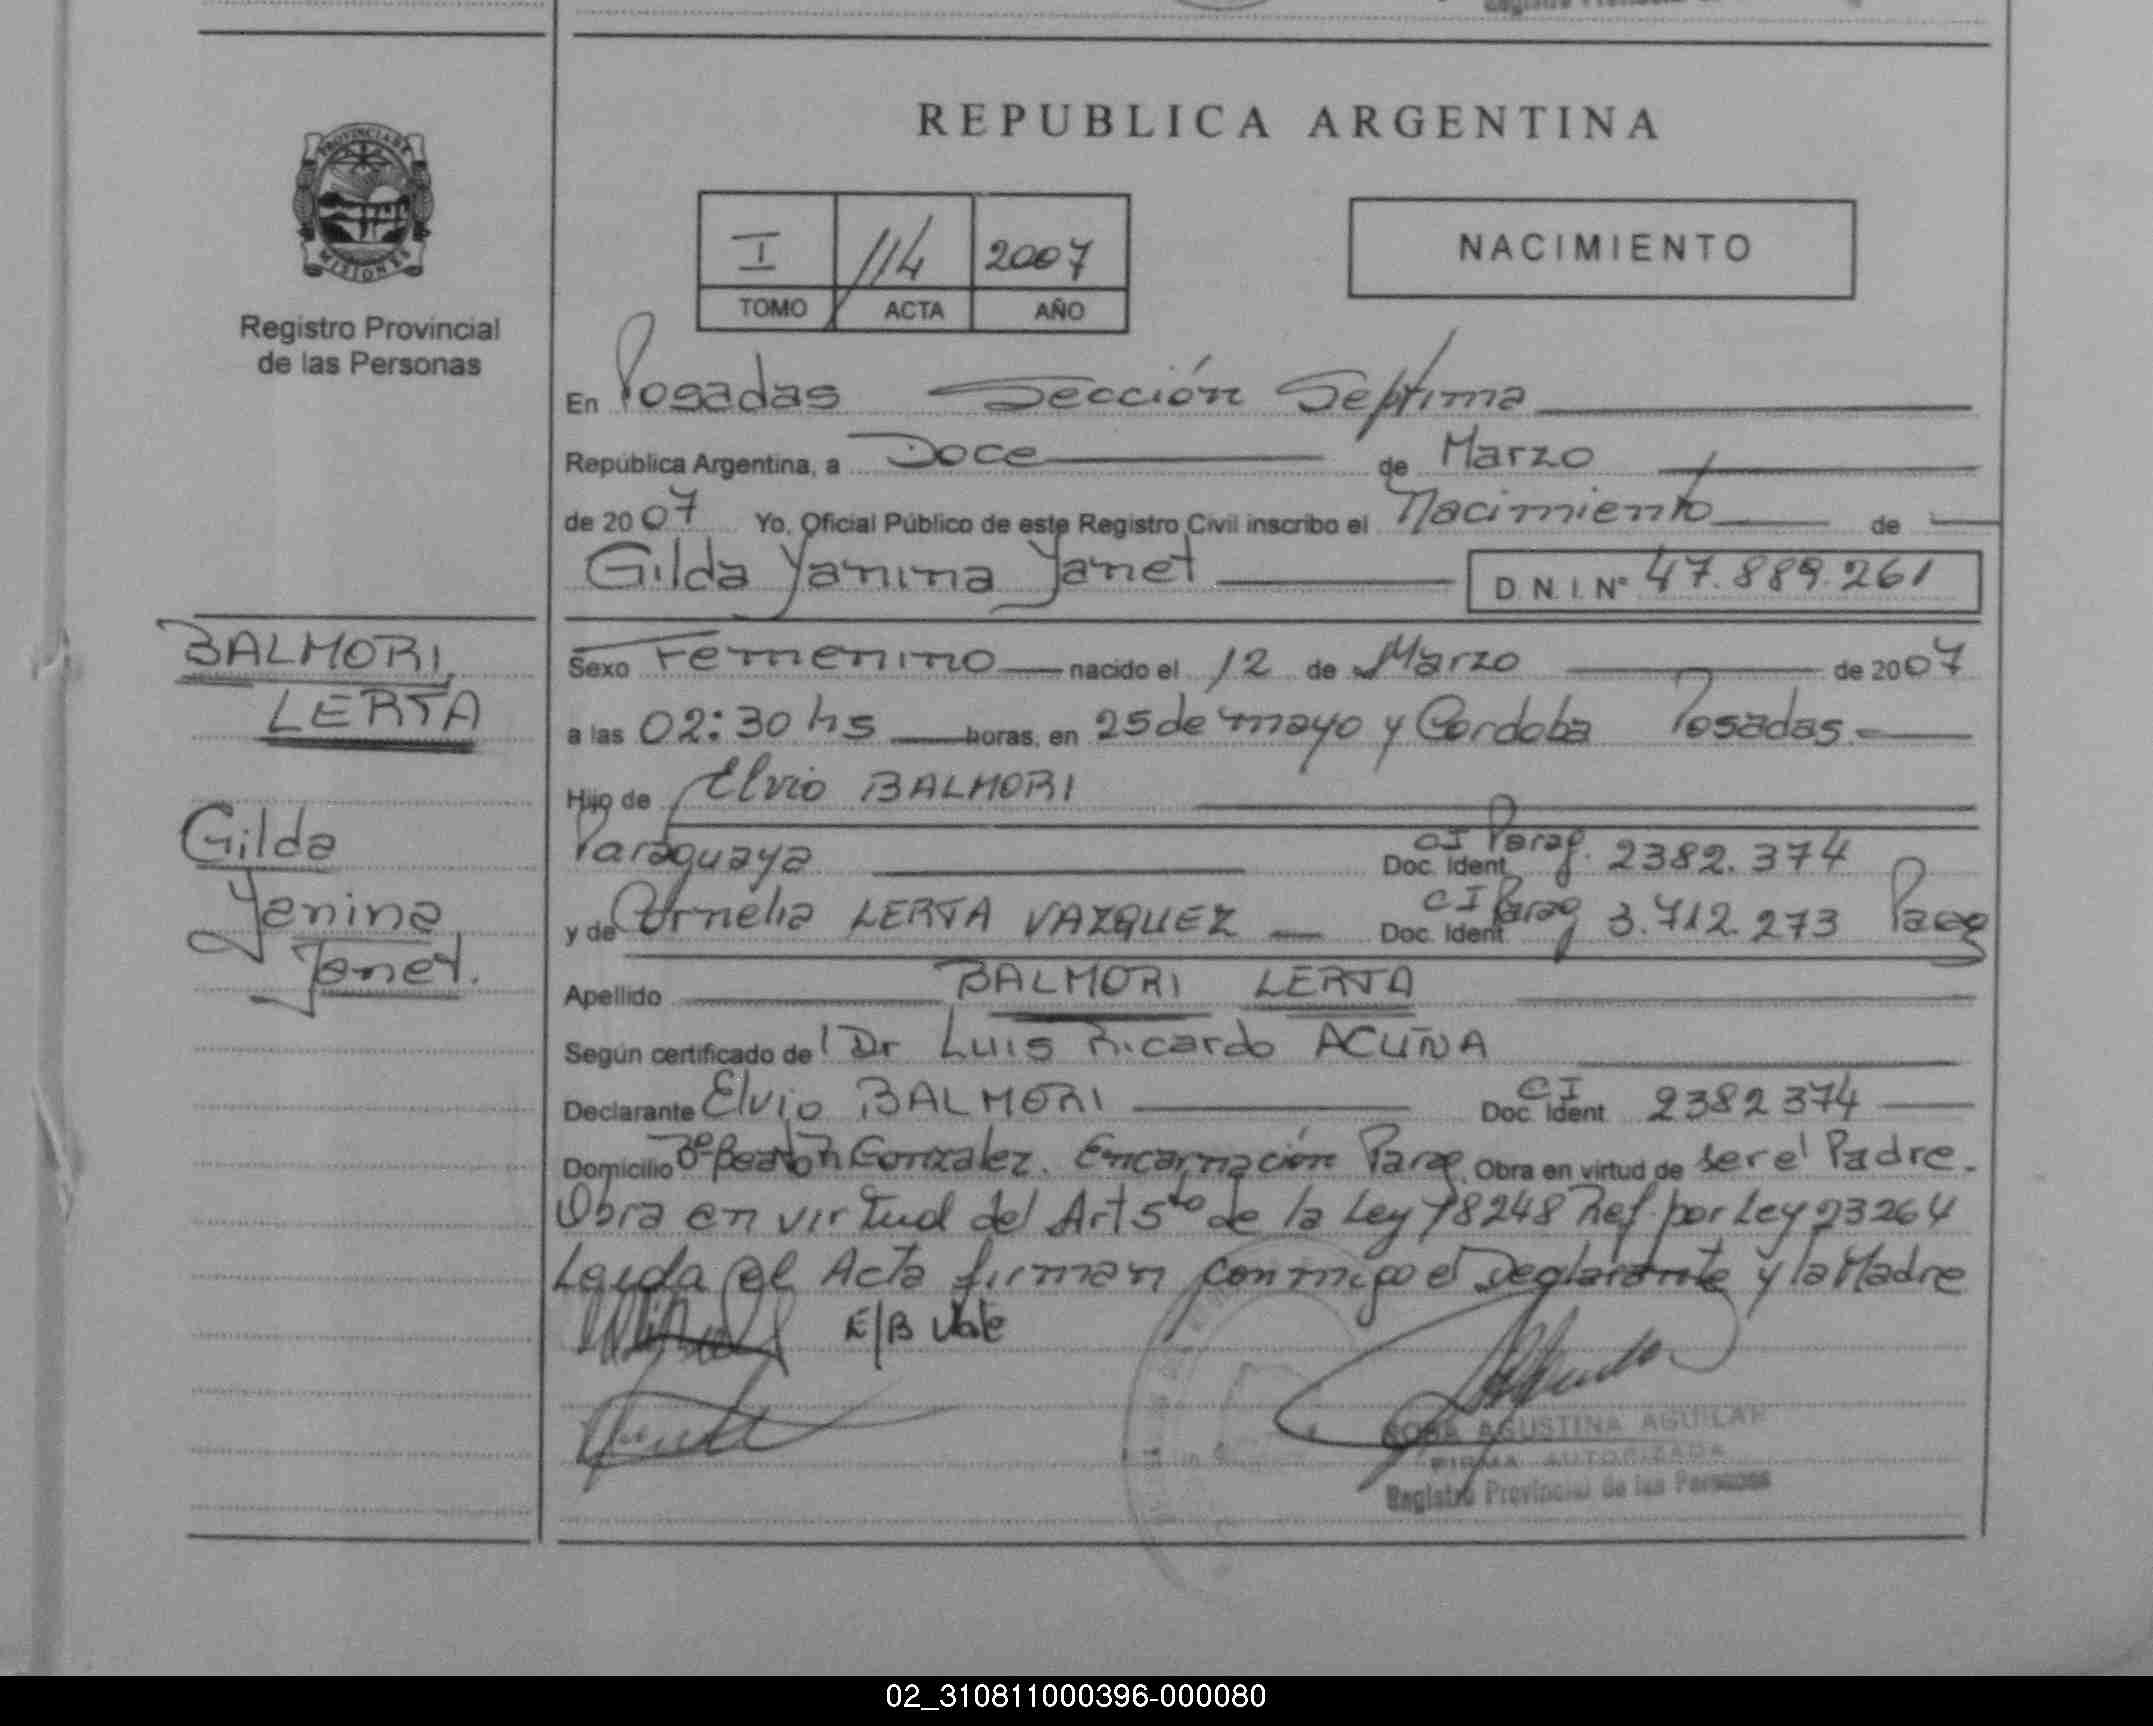 REPUBLICA ARGENTINA
PROVINCIA DE
MISIONES
Registro Provincial
de las Personas
I 114 2007
TOMO ACTA AÑO
NACIMIENTO
En Posadas Sección Septima
República Argentina, a Doce de Marzo
de 2007 Yo, Oficial Público de este Registro Civil inscribo el Nacimiento de
Gilda Yanina Yanet D.N.I. Nº 47.889.261
BALMORI
LERTA
Gilda
Yanina
Yanet.
Sexo Femenino nacido el 12 de Marzo de 2007
a las 02:30 hs horas, en 25 de mayo y Cordoba Posadas.
Hijo de Elvio BALMORI
Paraguaya CI Parag. Doc. Ident 2382.374
y de Cornelia LERTA VAZQUEZ CI Parag Doc. Ident 3.712.273 Parag
Apellido BALMORI LERTA
Según certificado del Dr Luis Ricardo ACUÑA
Declarante Elvio BALMORI CI Doc. Ident 2382374
Domicilio Gonzalez. Encarnación Parag. Obra en virtud de ser el Padre.
Obra en virtud del Art 5to de la Ley 18248 Ref. por Ley 23264
Leida el Acta firman conmigo el Declarante y la Madre
E/B Vale
AGUSTINA AGUILAR
FIRMA AUTORIZADA
Registro Provincial de las Personas
02_310811000396-000080